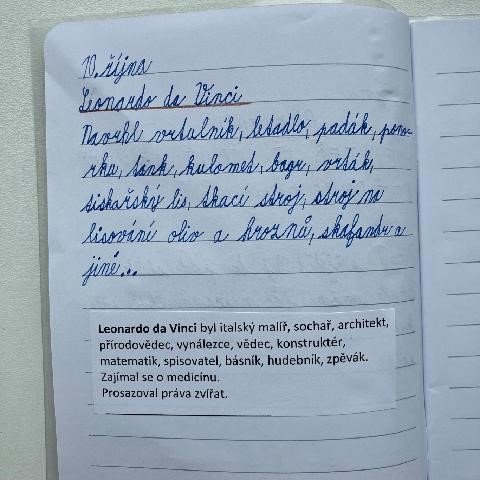 10. října
Leonardo da Vinci
Navrhl vrtulník, letadlo, padák, pono-
rku, tank, kulomet, bagr, vrták,
tiskařský lis, tkací stroj, stroj na
lisování oliv a hroznů, skafandr a
jiné...
Leonardo da Vinci byl italský malíř, sochař, architekt,
přírodovědec, vynálezce, vědec, konstruktér,
matematik, spisovatel, básník, hudebník, zpěvák.
Zajímal se o medicínu.
Prosazoval práva zvířat.